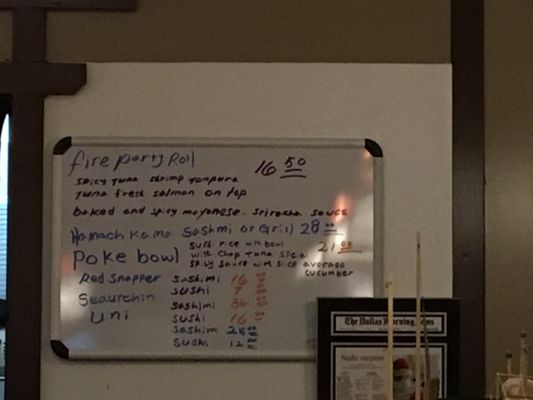 fire party Roll 16 50
spicy tuna shrimp tenpura
tuna fresh salmon on top
baked and spicy mayonese. sriracha sauce
Hamach Kama Sashmi or Grill 28 00
Poke bowl 21 00
Sush rice with bowl
with chop tuna
spicy sauce with slice avocado
cucumber
Red Snapper Sashimi 16
sushi 7
Seaurchin Sashimi 36
Uni sushi 16
Sashimi 28
sushi 12
The Dallas Morning News
Sushi surprise